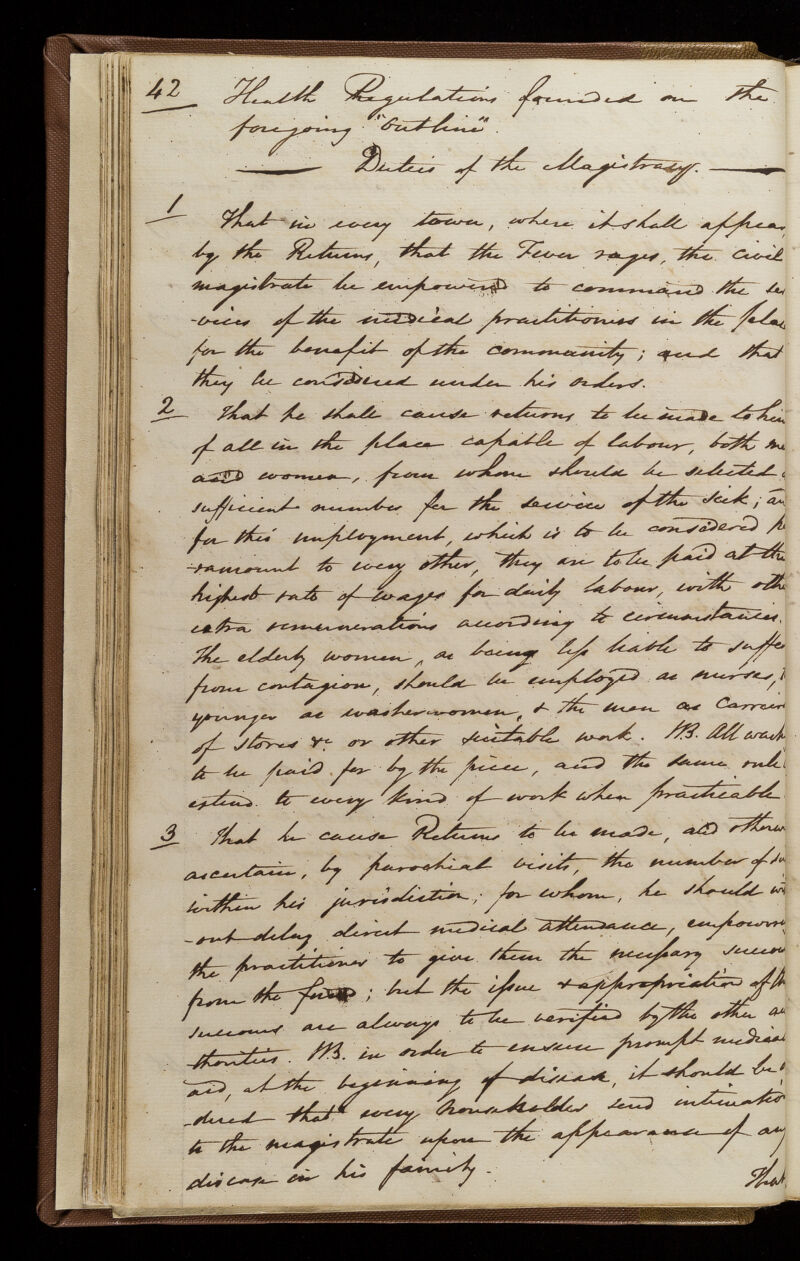 42 Health Regulations founded on the
foregoing "outline".
Duties of the Magistracy.
1 That in every town, where it shall appear
by the Returns, that the Fever rages, the civil
magistrate be empowered to command the ser
-vices of the medical practitioners in the place
for the benefit of the community; and that
they be considered under his orders.
2 That he shall cause returns to be made to him
of all in the place capable of labour, both me
and women, from whom should be selected a
sufficient number for the service of the sick; an
for this employment, which is to be considered pa
-ramount to every other, they are to be paid at the
highest rate of wages for daily labour, with othe
extra remunerations according to circumstances.
The elderly women, as being less liable to suffe
from contagion, should be employed as nurses,
younger as washerwomen, & the men as carriers
of stores &c or other suitable work. NB. All work
to be paid for by the piece, and the same rule
extend to every kind of work when practicable
3 That he cause Returns to be made, and otherw
ascertain, by parochial visits, the number of
within his jurisdiction; for whom, he should wi
-out delay direct medical attendance, empowering
the practitioner to give them the necessary succou
from the fund; but the issue & appropriation of th
succours are always to be verified by the other au
-thorities. NB. in order to ensure prompt medical
aid, at the beginning of disease, it should be o
-dered that every householder send intimatio
to the magistrate upon the appearance of any
disease in his family.
That